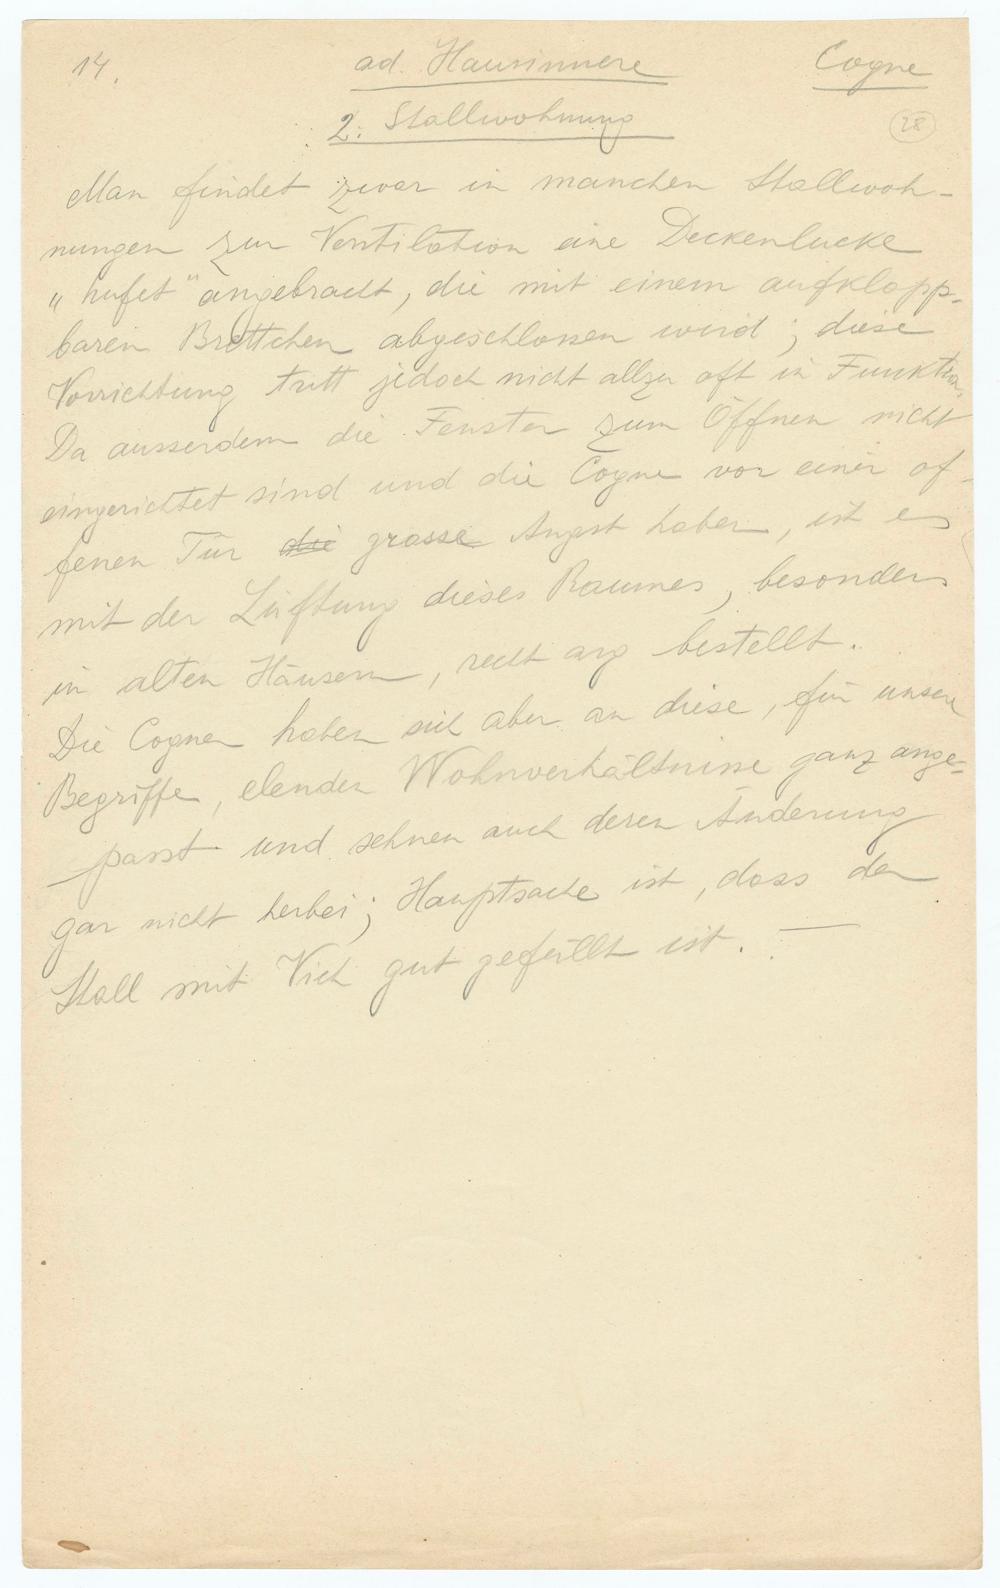 14.
ad. Hausinnere
Cogne
2. Stallwohnung
28
Man findet zwar in manchen Stallwoh-
nungen zur Ventilation eine Deckenlucke
„hufet" angebracht, die mit einem aufklapp-
baren Brettchen abgeschlossen wird; diese
Vorrichtung tritt jedoch nicht allzu oft in Funktion.
Da ausserdem die Fenster zum Öffnen nicht
eingerichtet sind und die Cogner vor einer of-
fenen Tür die grosse Angst haben, ist es
mit der Lüftung dieses Raumes, besonders
in alten Häusern, recht arg bestellt.
Die Cogner haben sich aber an diese, für unsere
Begriffe, elenden Wohnverhältnisse ganz ange-
passt und sehnen auch deren Änderung
gar nicht herbei; Hauptsache ist, dass der
Stall mit Vieh gut gefüllt ist. —